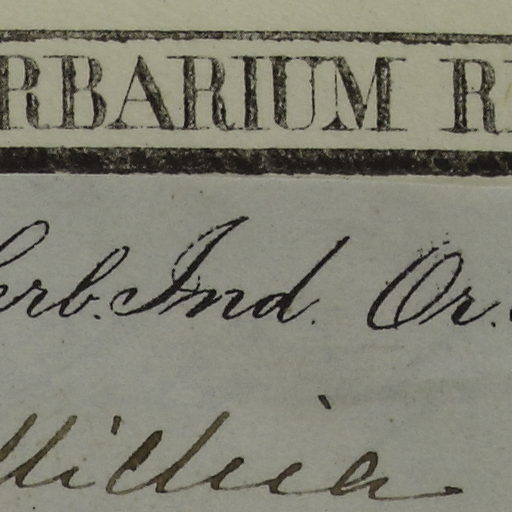 RBARIUM R
erb. Ind. Or.